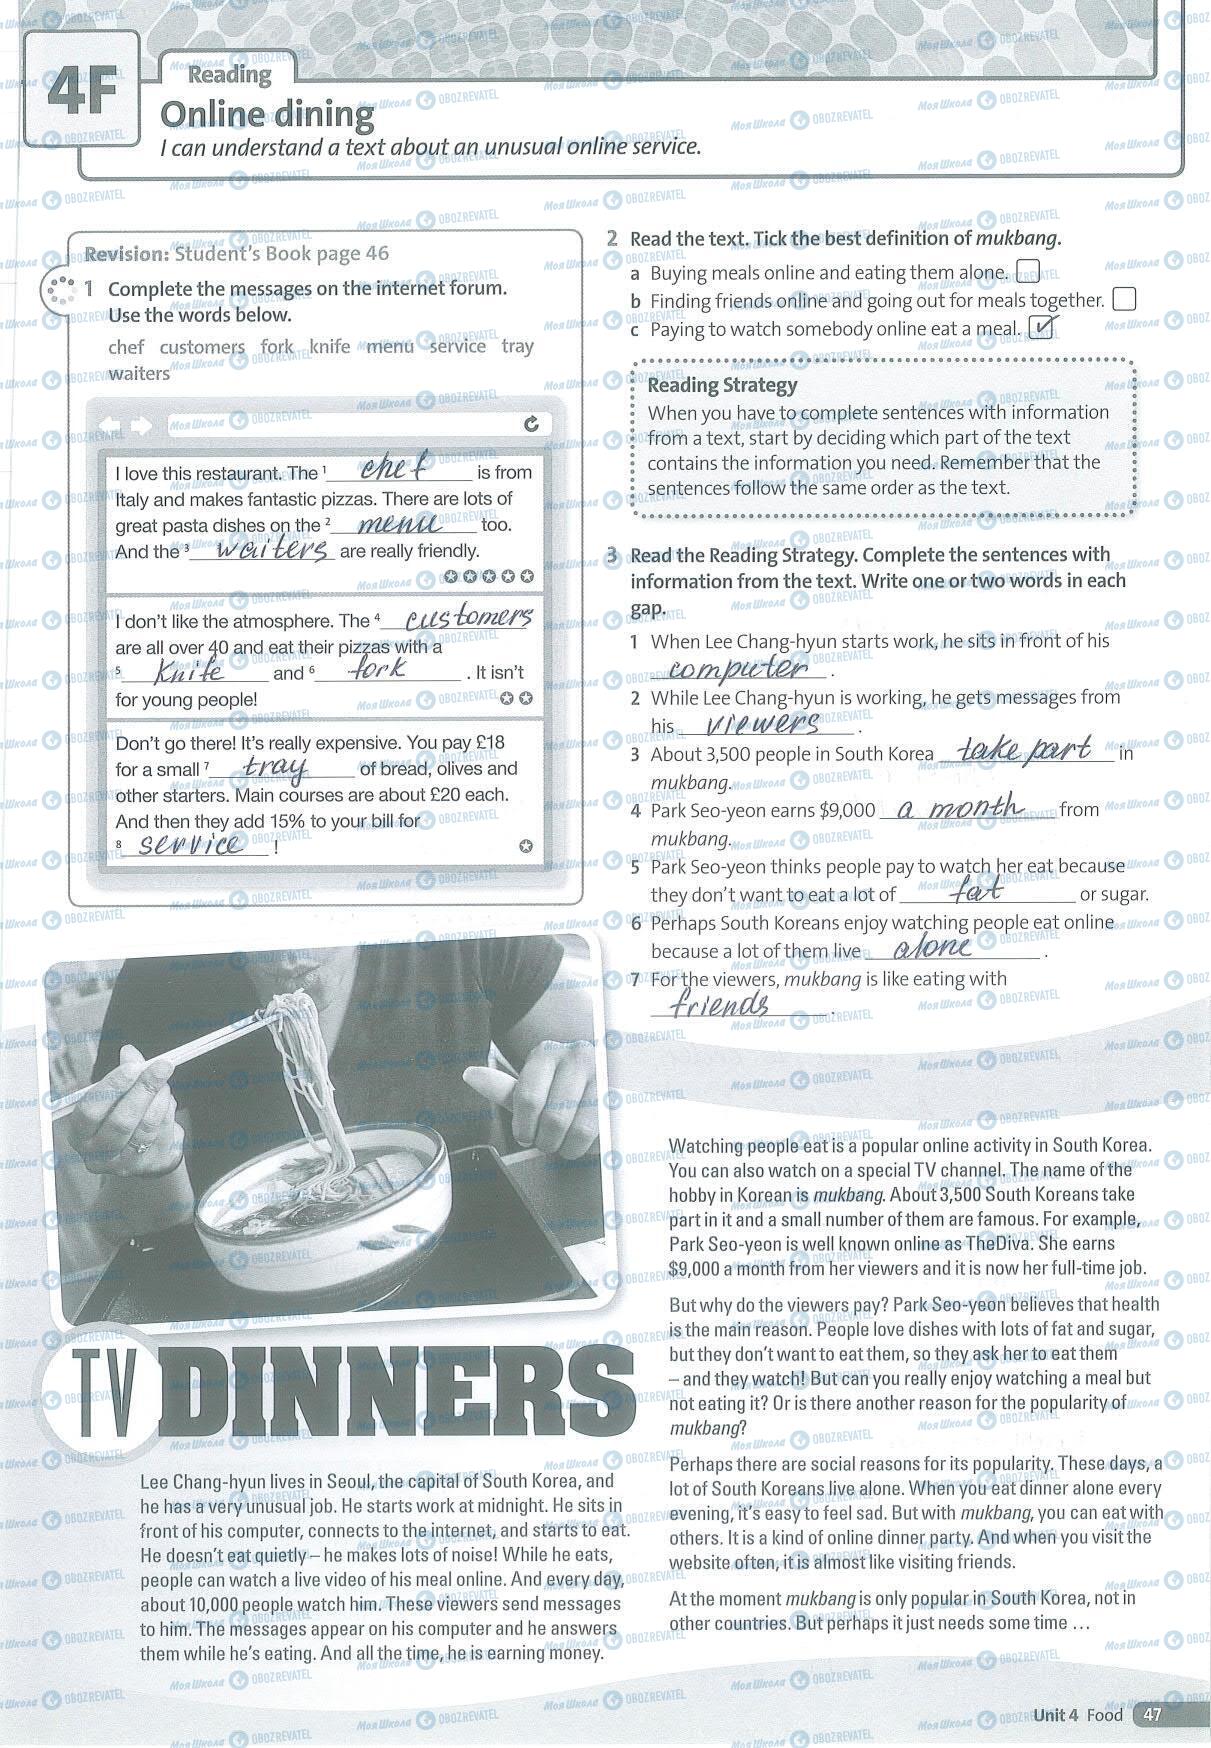 4F
Reading
Online dining
I can understand a text about an unusual online service.
Revision: Student's Book page 46
1 Complete the messages on the internet forum.
Use the words below.
chef customers fork knife menu service tray
waiters
I love this restaurant. The 1 chef is from
Italy and makes fantastic pizzas. There are lots of
great pasta dishes on the 2 menu too.
And the 3 waiters are really friendly.
I don't like the atmosphere. The 4 customers
are all over 40 and eat their pizzas with a
5 knife and 6 fork . It isn't
for young people!
Don't go there! It's really expensive. You pay £18
for a small 7 tray of bread, olives and
other starters. Main courses are about £20 each.
And then they add 15% to your bill for
8 service !
2 Read the text. Tick the best definition of mukbang.
a Buying meals online and eating them alone.
b Finding friends online and going out for meals together.
c Paying to watch somebody online eat a meal. ✓
Reading Strategy
When you have to complete sentences with information
from a text, start by deciding which part of the text
contains the information you need. Remember that the
sentences follow the same order as the text.
3 Read the Reading Strategy. Complete the sentences with
information from the text. Write one or two words in each
gap.
1 When Lee Chang-hyun starts work, he sits in front of his
computer .
2 While Lee Chang-hyun is working, he gets messages from
his viewers .
3 About 3,500 people in South Korea take part in
mukbang.
4 Park Seo-yeon earns $9,000 a month from
mukbang.
5 Park Seo-yeon thinks people pay to watch her eat because
they don't want to eat a lot of fat or sugar.
6 Perhaps South Koreans enjoy watching people eat online
because a lot of them live alone .
7 For the viewers, mukbang is like eating with
friends .
TV DINNERS
Lee Chang-hyun lives in Seoul, the capital of South Korea, and
he has a very unusual job. He starts work at midnight. He sits in
front of his computer, connects to the internet, and starts to eat.
He doesn't eat quietly – he makes lots of noise! While he eats,
people can watch a live video of his meal online. And every day,
about 10,000 people watch him. These viewers send messages
to him. The messages appear on his computer and he answers
them while he's eating. And all the time, he is earning money.
Watching people eat is a popular online activity in South Korea.
You can also watch on a special TV channel. The name of the
hobby in Korean is mukbang. About 3,500 South Koreans take
part in it and a small number of them are famous. For example,
Park Seo-yeon is well known online as TheDiva. She earns
$9,000 a month from her viewers and it is now her full-time job.
But why do the viewers pay? Park Seo-yeon believes that health
is the main reason. People love dishes with lots of fat and sugar,
but they don't want to eat them, so they ask her to eat them
– and they watch! But can you really enjoy watching a meal but
not eating it? Or is there another reason for the popularity of
mukbang?
Perhaps there are social reasons for its popularity. These days, a
lot of South Koreans live alone. When you eat dinner alone every
evening, it's easy to feel sad. But with mukbang, you can eat with
others. It is a kind of online dinner party. And when you visit the
website often, it is almost like visiting friends.
At the moment mukbang is only popular in South Korea, not in
other countries. But perhaps it just needs some time …
Unit 4 Food 47
Моя Школа OBOZREVATEL